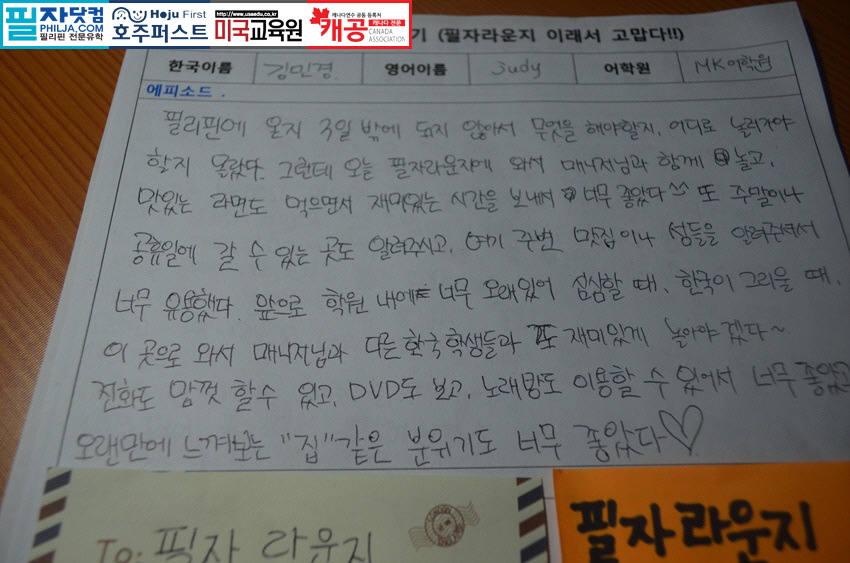 필자닷컴 PHILJA.COM 필리핀 전문유학
Hoju First 호주퍼스트
www.usaedu.co.kr 미국교육원
캐나다연수 공동 등록처 캐공 캐나다 전문 CANADA ASSOCIATION
기 (필자라운지 이래서 고맙다!!)
한국이름 김민경. 영어이름 Judy 어학원 MK어학원
에피소드.
필리핀에 온지 3일 밖에 되지 않아서 무엇을 해야할지, 어디로 놀러가야
할지 몰랐다. 그런데 오늘 필자라운지에 와서 매니저님과 함께 놀고,
맛있는 라면도 먹으면서 재미있는 시간을 보내서 너무 좋았다^^ 또 주말이나
공휴일에 갈 수 있는 곳도 알려주시고, 여기 주변 맛집이나 섬들을 알려주셔서
너무 유용했다. 앞으로 학원 내에 너무 오래있어 심심할 때, 한국이 그리울 때,
이 곳으로 와서 매니저님과 다른 한국 학생들과 또 재미있게 놀아야겠다~
전화도 맘껏 할수 있고, DVD도 보고, 노래방도 이용할 수 있어서 너무 좋았고
오랜만에 느껴보는 "집"같은 분위기도 너무 좋았다♡
To: 필자 라운지
필자라운지